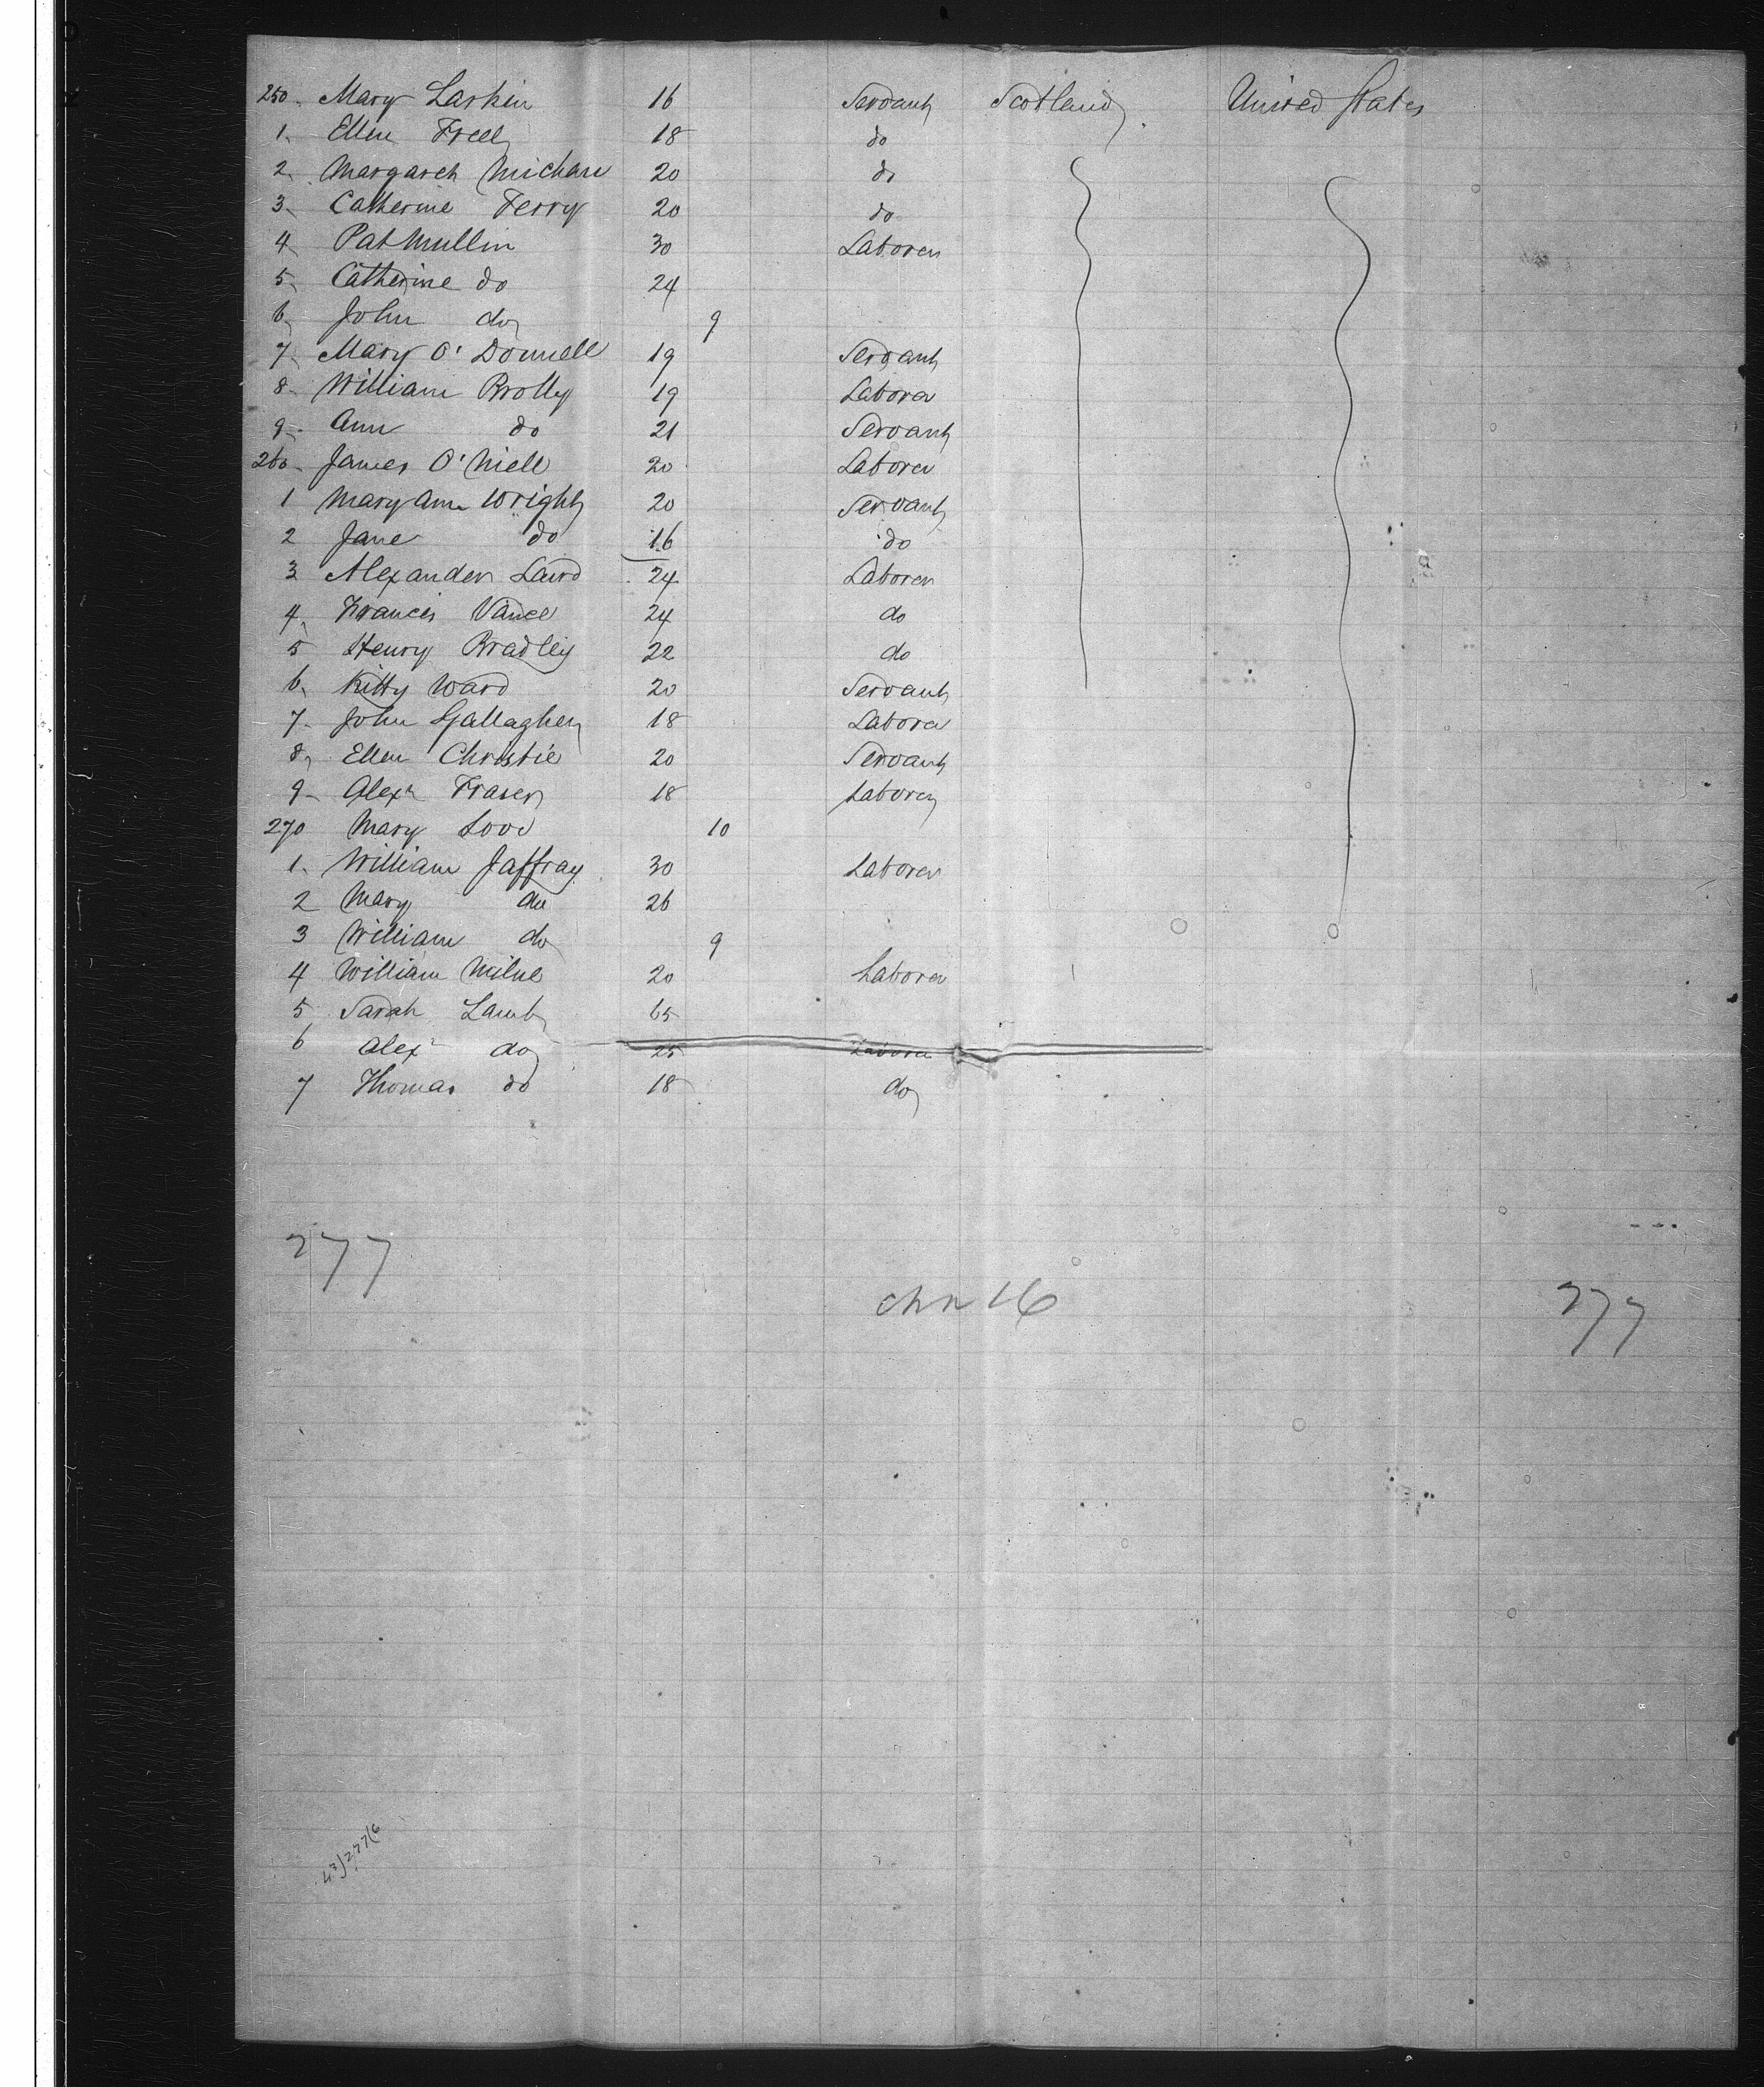 250. Mary Larkin 16 Servant Scotland United States
1. Ellen Freel 18 do
2. Margaret Michan 20 do
3. Catherine Ferry 20 do
4. Pat Mullin 30 Laborer
5. Catherine do 24
6. John do 9
7. Mary O'Donnell 19 Servant
8. William Brolly 19 Laborer
9. Ann do 21 Servant
260. James O'Niell 20 Laborer
1 Mary Ann Wright 20 Servant
2 Jane do 16 do
3 Alexander Laird 24 Laborer
4. Francis Vance 24 do
5 Henry Bradley 22 do
6. Kitty Ward 20 Servant
7. John Gallagher 18 Laborer
8. Ellen Christie 20 Servant
9. Alexr Fraser 18 Laborer
270 Mary 10
1. William Jaffray 30 Laborer
2 Mary do 26
3 William do 9
4 William Milne 20 Laborer
5 Sarah Lamb 65
6 Alexr do 25 Laborer
7 Thomas do 18 do
277
chn 16
277
43/277/6